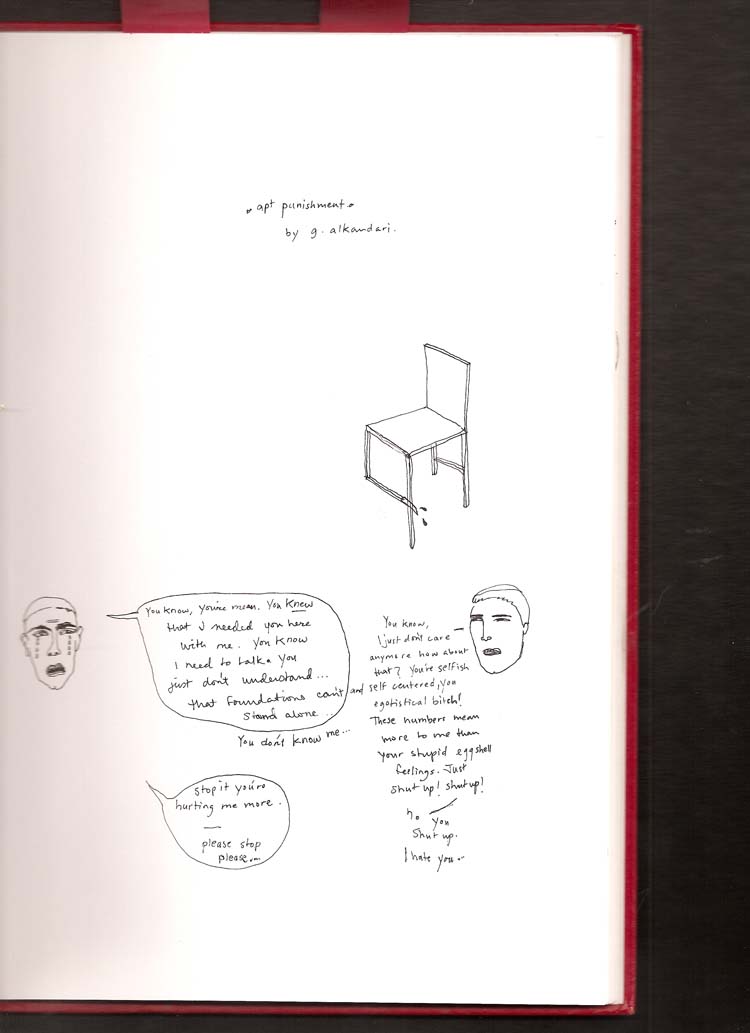 apt punishment
by g. alkandari.
You know, you're mean. You knew
that I needed you here
with me. You know
I need to talk & you
just don't understand...
that foundations can't
stand alone...
You don't know me...
Stop it you're
hurting me more.
please stop
please...
You know,
I just don't care
anymore how about
that? You're selfish
and self centered, you
egotistical bitch!
These numbers mean
more to me than
your stupid eggshell
feelings. Just
shut up! shut up!
no you
Shut up.
I hate you..